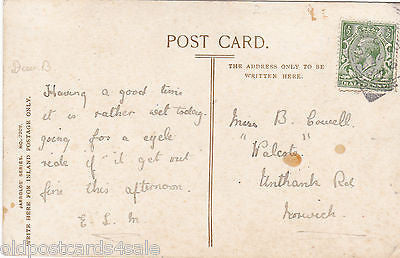 POST CARD.
THE ADDRESS ONLY TO BE
WRITTEN HERE.
JARROLDS SERIES. NO. 2307
WRITE HERE FOR INLAND POSTAGE ONLY.
Dear B
Having a good time
it is rather wet today.
going for a cycle
ride if it get out
fine this afternoon.
E. L. M
Miss B. Cowell
"Walcote"
Unthank Rd
Norwich
oldpostcards4sale